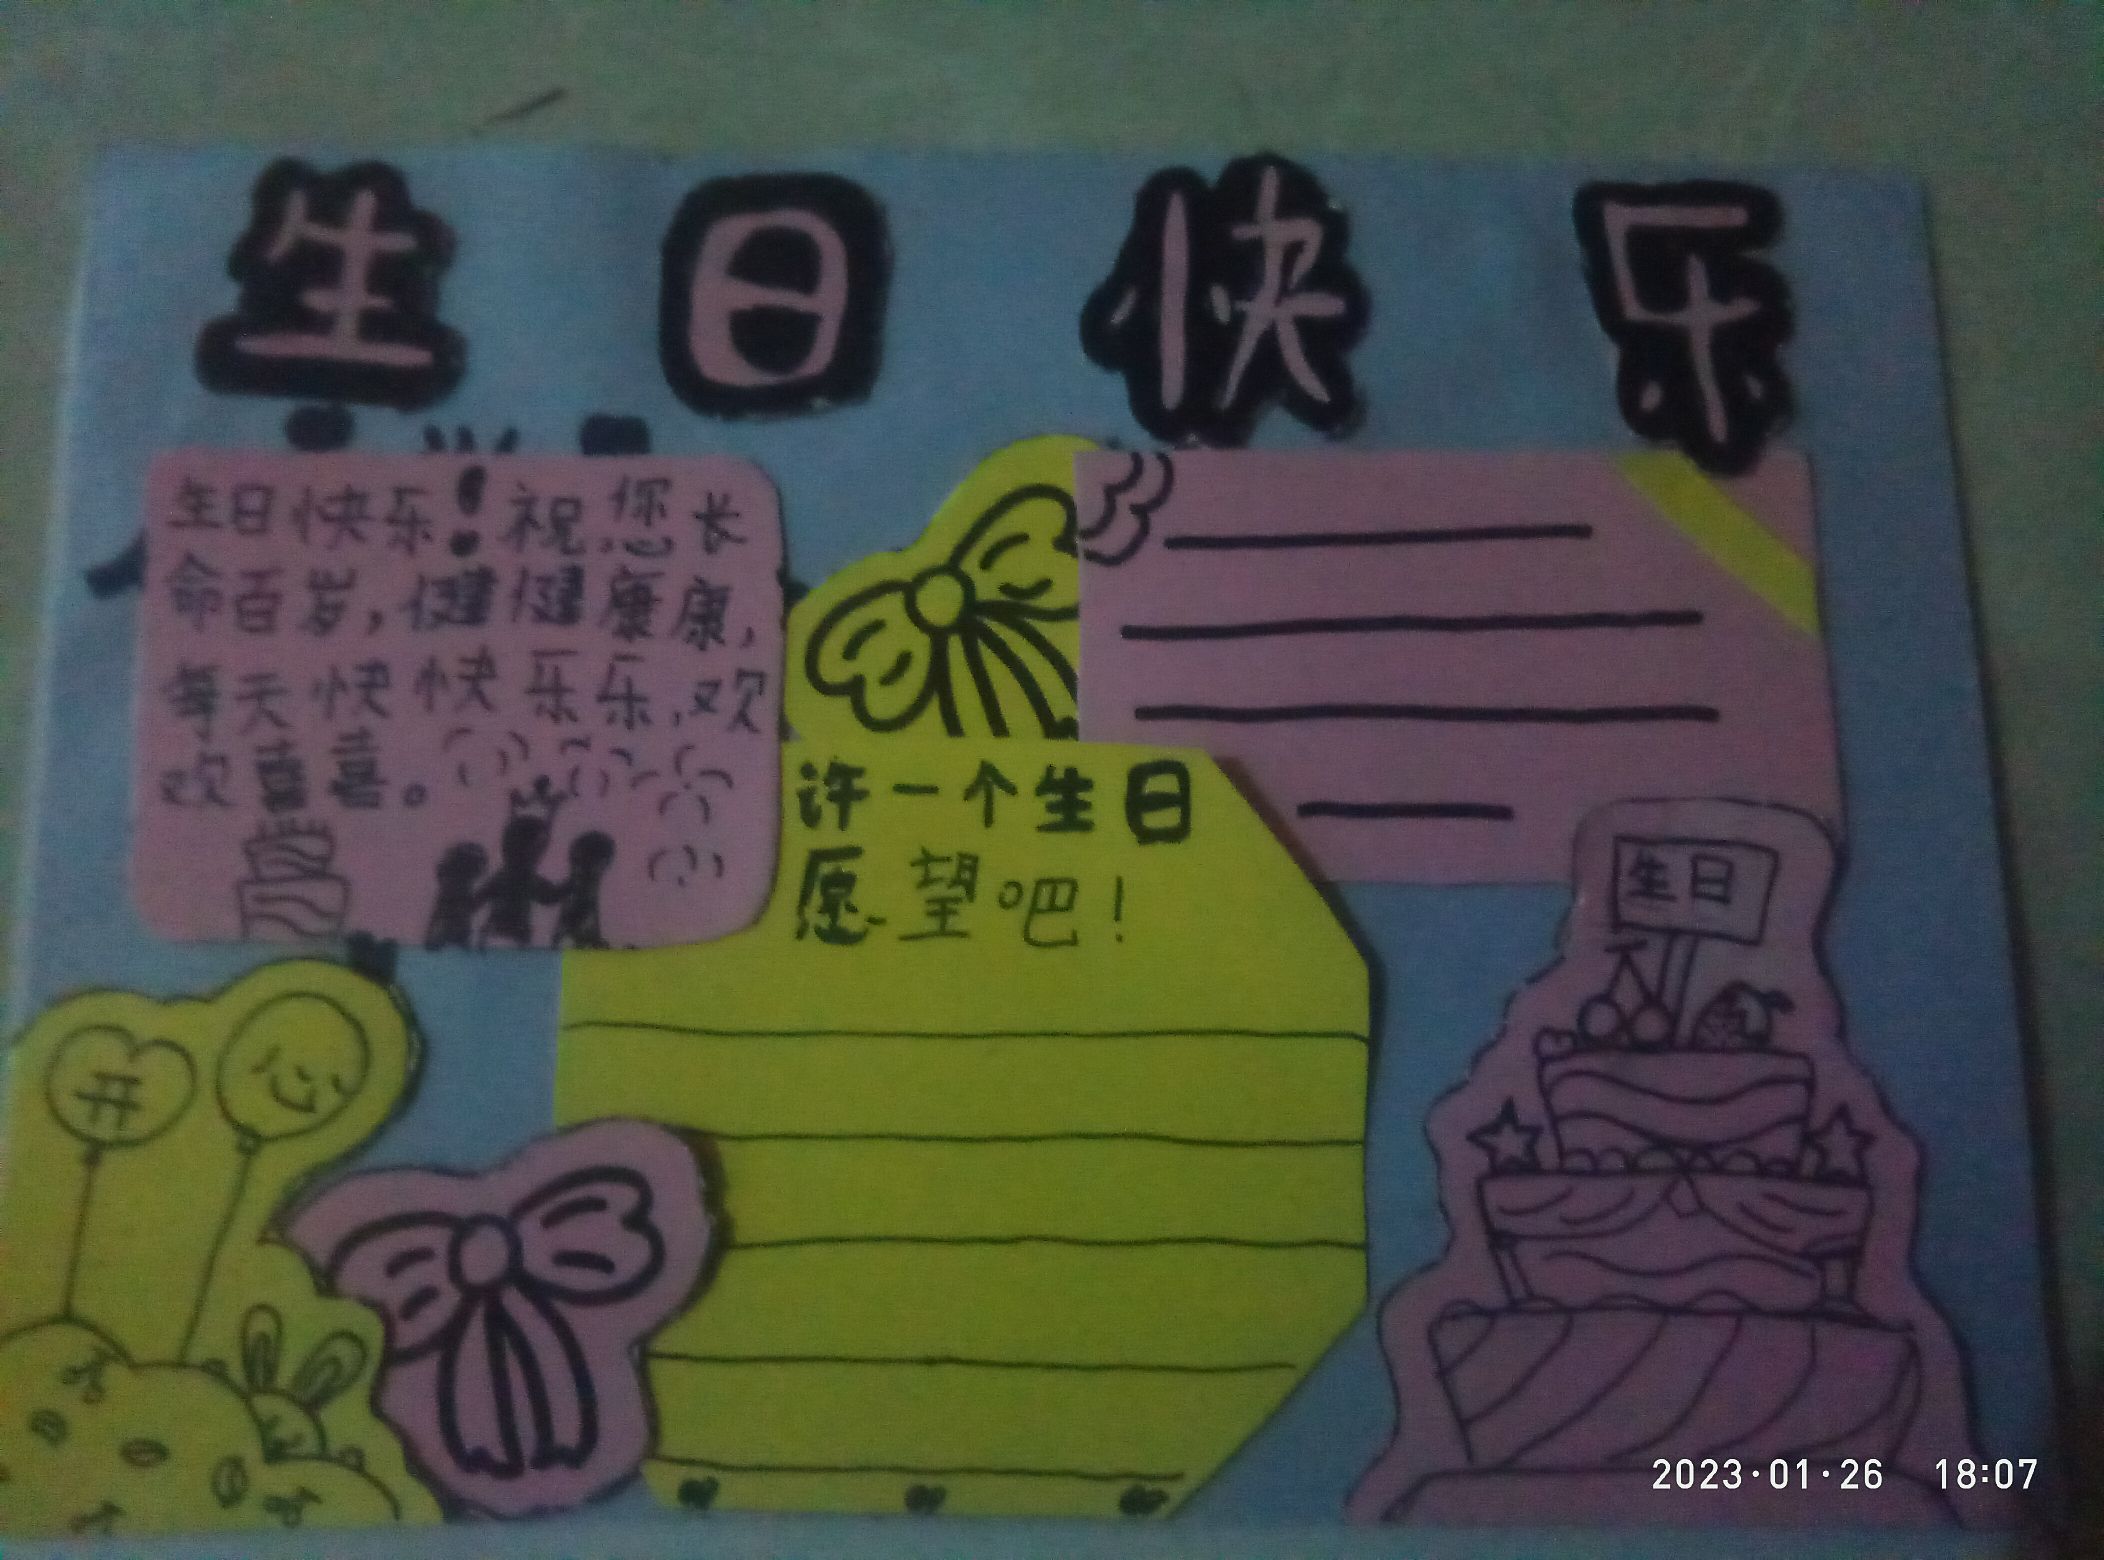 生日快乐
生日快乐！祝您长
命百岁，健健康康，
每天快快乐乐，欢
欢喜喜。
许一个生日
愿望吧！
生日
开心
2023·01·26 18:07